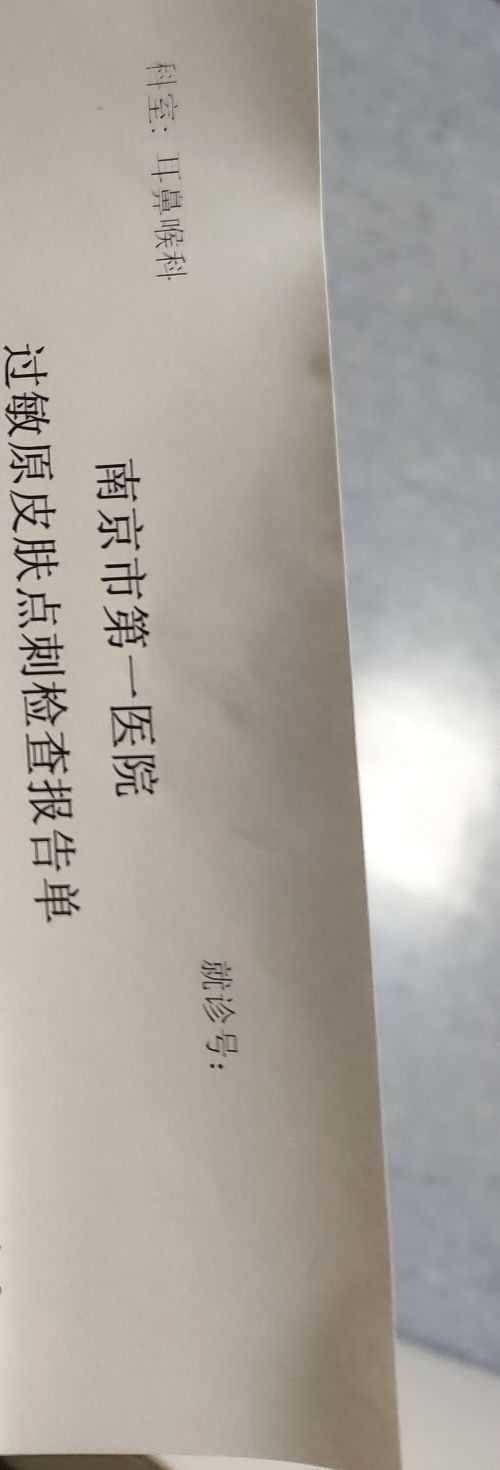 就诊号：
南京市第一医院
科室：耳鼻喉科
过敏原皮肤点刺检查报告单